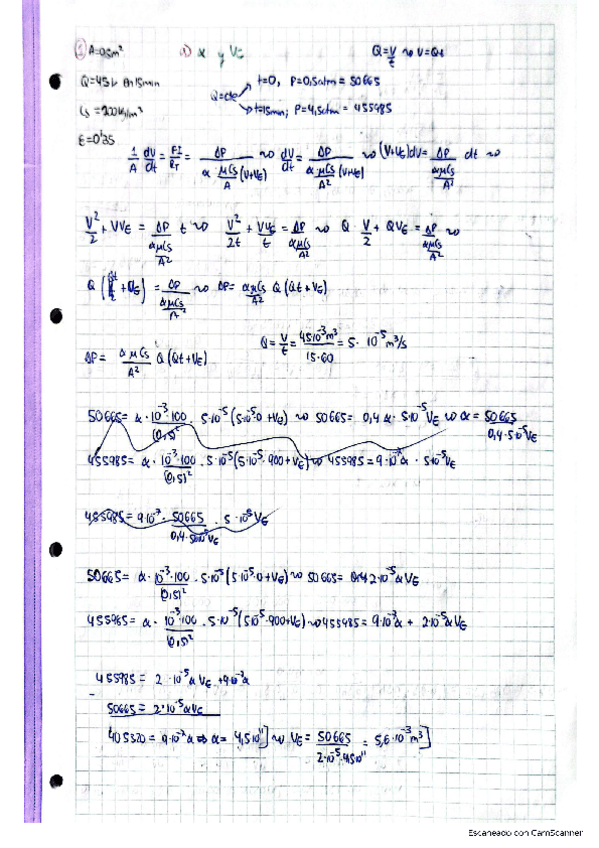 ① A=0,5m² a) α y VE Q=V/t ~> V=Qt
Q=45L en 15min t=0, P=0,5atm = 50665
Q=cte
t=15min; P=4,5atm = 455985
ε=0'35
1/A dV/dt = ΔP/(α μCs/A (V+VE)) ~> dV/dt = ΔP/(α μCs/A² (V+VE)) ~> (V+VE)dV = ΔP/(αμCs/A²) dt ~>
V²/2 + VVE = ΔP/(αμCs/A²) t ~> V²/2t + VVE/t = ΔP/(αμCs/A²) ~> Q · V/2 + QVE = ΔP/(αμCs/A²) ~>
~> ΔP = αμCs/A² Q (Qt+VE)
Q = V/t = 45·10⁻³m³/15·60 = 5· 10⁻⁵ m³/s
ΔP = αμCs/A² Q (Qt+VE)
50665 = α · 10⁻³·100/(0,5)² · 5·10⁻⁵ (5·10⁻⁵·0 + VE) ~> 50665 = 0,4 α · 5·10⁻⁵ VE ~> α = 50665/0,4·5·10⁻⁵VE
455985 = α · 10⁻³·100/(0,5)² · 5·10⁻⁵ (5·10⁻⁵·900 + VE) ~> 455985 = 9·10⁻⁷ α · 5·10⁻⁵ VE
455985 = 9·10⁻⁷ · 50665/0,4·5·10⁻⁵VE · 5·10⁻⁵ VE
50665 = α · 10⁻³·100/(0,5)² · 5·10⁻⁵ (5·10⁻⁵·0 + VE) ~> 50665 = 2·10⁻⁵ α VE
455985 = α · 10⁻³·100/(0,5)² · 5·10⁻⁵ (5·10⁻⁵·900+VE) ~> 455985 = 9·10⁻⁷α + 2·10⁻⁵ α VE
455985 = 2·10⁻⁵ α VE + 9·10⁻⁷α
-
50665 = 2·10⁻⁵ α VE
405320 = 9·10⁻⁷ α => α = 4,5·10¹¹] ~> VE = 50665/2·10⁻⁵·4,5·10¹¹ = 5,6·10⁻³ m³]
Escaneado con CamScanner